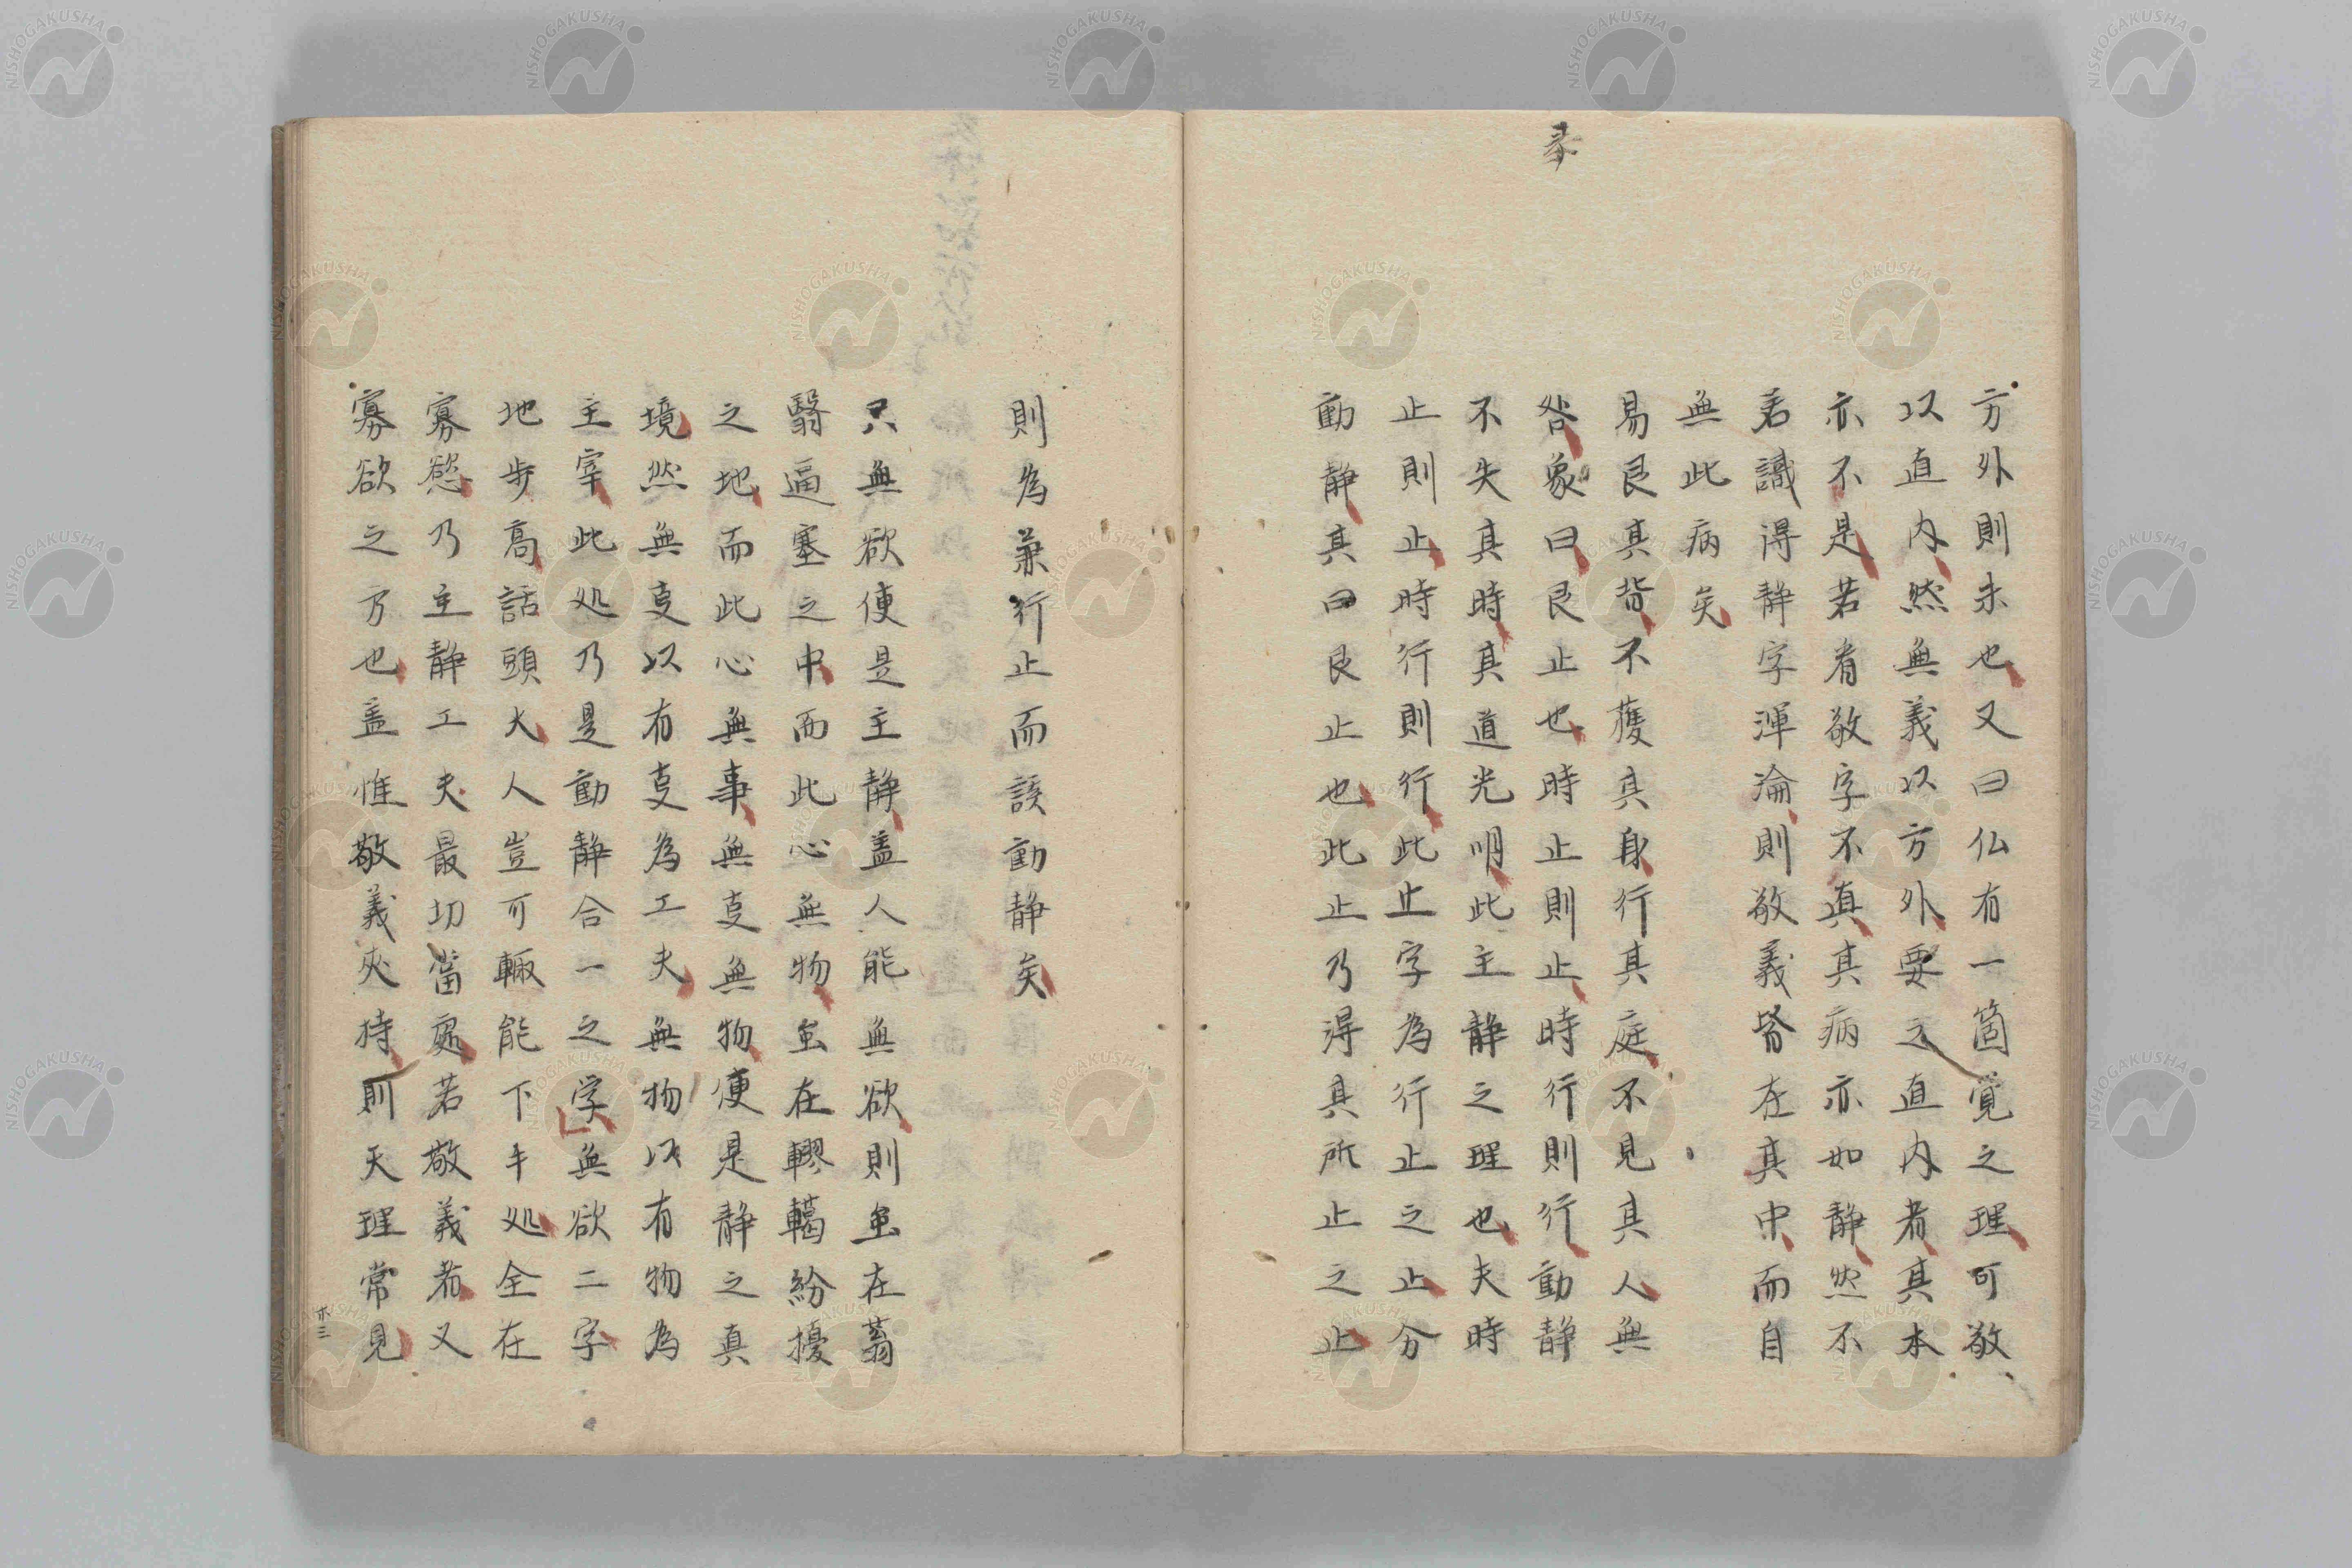 彖
方外則未也又曰仏有一箇覚之理可敬
以直内然無義以方外要之直内者其本
亦不是若看敬字不真其病亦如静然不
若識得静字渾淪則敬義皆在其中而自
無此病矣
易艮其背不獲其身行其庭不見其人無
咎象曰艮止也時止則止時行則行動静
不失其時其道光明此主静之理也夫時
止則止時行則行此止字為行止之止分
動静其曰艮止也此止乃得其所止之止
則為兼行止而該動静矣
只無欲便是主静盖人能無欲則虽在蓊
翳逼塞之中而此心無物虽在轇轕紛擾
之地而此心無事無㕝無物便是静之真
境然無㕝以有㕝為工夫無物以有物為
主宰此処乃是動静合一之学無欲二字
地步高話頭大人豈可輙能下手処全在
寡慾乃主静工夫最切當處若敬義者又
寡欲之方也盖惟敬義夾持則天理常見
ホ三
NISHOGAKUSHA